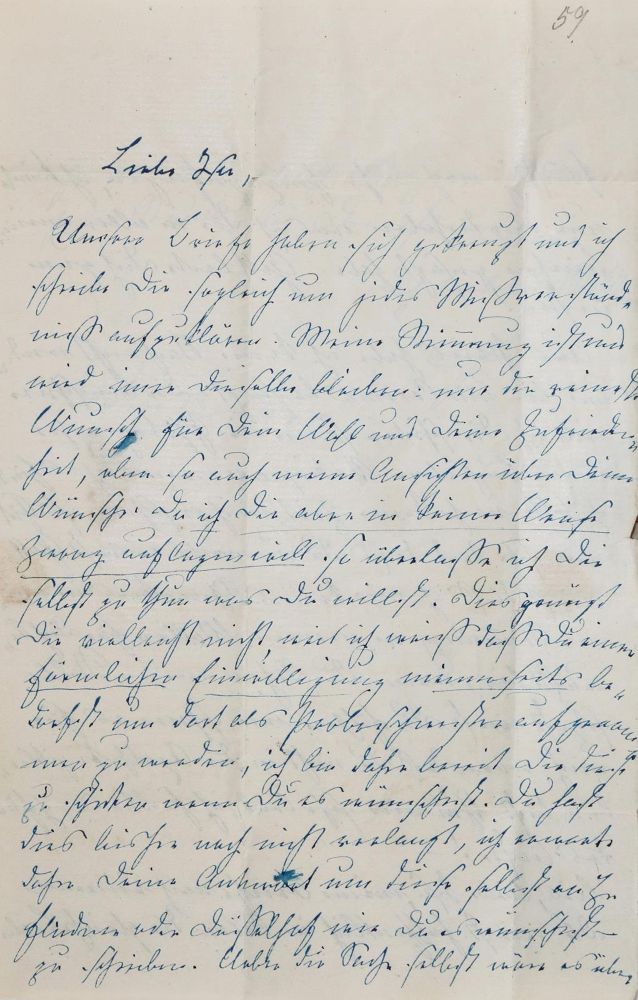 59
Liebe Ida,
Unsere Briefe haben sich gekreuzt und ich
schreibe Dir sogleich um jedes Missverständ-
niss aufzuklären. Meine Stimmung ist und
wird immer dieselbe bleiben: nur der reinste
Wunsch für Dein Wohl und Deine Zufrieden-
heit, eben so auch meine Ansichten über Deine
Wünsche. Da ich Dir aber in keiner Weise
Zwang auflegen will so überlasse ich Dir
selbst zu thun was Du willst. Dies genügt
Dir vielleicht nicht, weil ich weiss dass Du einer
förmlichen Einwilligung meinerseits be-
darfst um dort als Probeschwester aufgenom
men zu werden, ich bin daher bereit Dir diese
zu schicken wenn Du es wünschest. Du hast
dies bisher noch nicht verlangt, ich erwarte
daher Deine Antwort um diese selbst an
Fliedner oder Düsselhof wie Du es wünschest
zu schreiben. Ueber die Sache selbst wäre es über